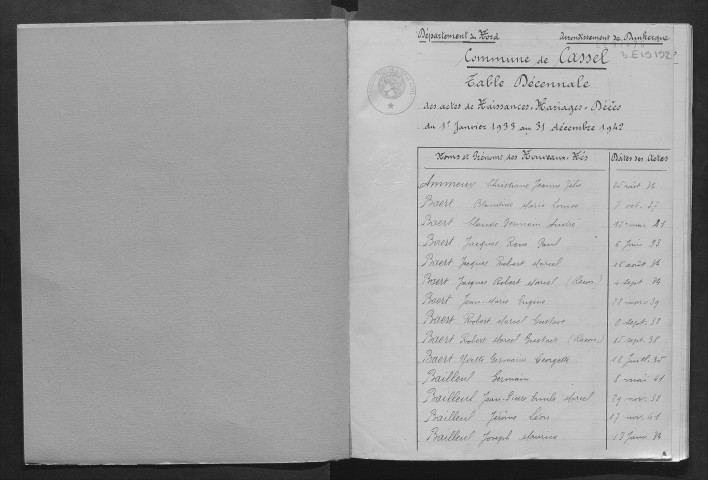 Département du Nord
Arrondissement de Dunkerque
Commune de Cassel
3 E 15192
Table Décennale
des actes de Naissances - Mariages - Décès
du 1er Janvier 1933 au 31 décembre 1942
Noms et Prénoms des Nouveaux-Nés Dates des Actes
Ammeux Christiane Jeanne 26 août 34
Baert Blandine Marie Louise 7 oct. 37
Baert Claude Germain André mai 41
Baert Jacques René Paul 6 Juin 38
Baert Jacques Robert Marcel 16 août 34
Baert Jacques Robert Marcel (Recon.) 4 sept. 34
Baert Jean-Marie Eugène 18 mars 39
Baert Robert Marcel Gustave 8 sept. 38
Baert Robert Marcel Gustave (Recon.) 15 sept. 38
Baert Yvette Germaine Georgette 12 Juill. 35
Bailleul Germain 8 mai 41
Bailleul Jean-Pierre Emile Marcel 29 nov. 38
Bailleul Jérôme Léon 17 nov. 41
Bailleul Joseph Maurice 13 Janv. 34